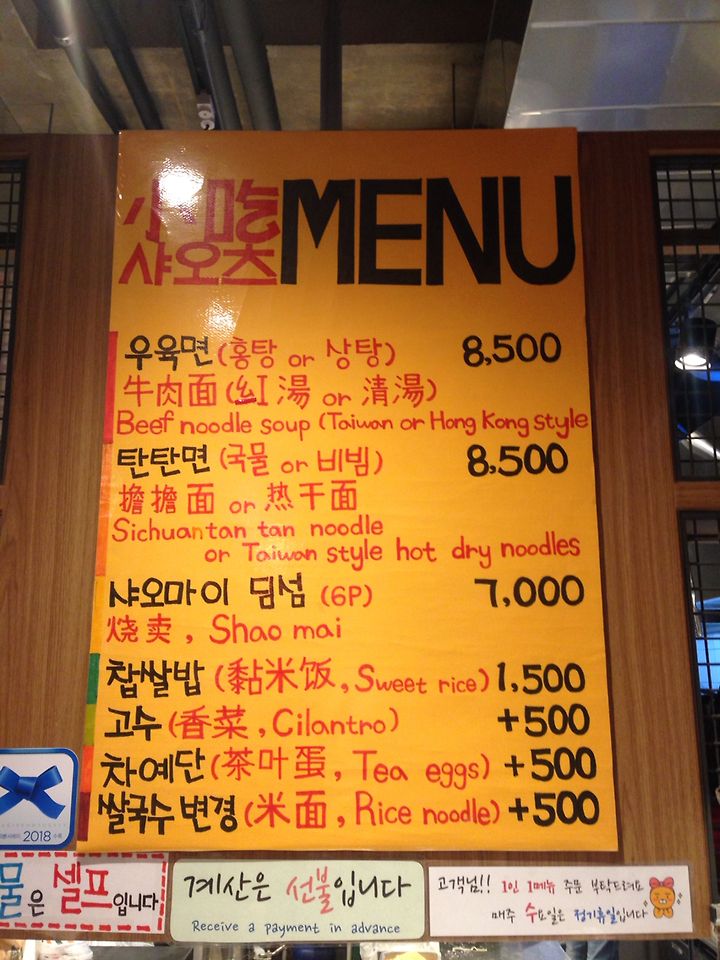 小吃 MENU
샤오츠
우육면 (홍탕 or 상탕) 8,500
牛肉面 (紅湯 or 清湯)
Beef noodle soup (Taiwan or Hong Kong style
탄탄면 (국물 or 비빔) 8,500
擔擔面 or 热干面
Sichuan tan tan noodle
or Taiwan style hot dry noodles
샤오마이 딤섬 (6P) 7,000
烧卖, Shao mai
찹쌀밥 (黏米饭, Sweet rice) 1,500
고수 (香菜, Cilantro) +500
차예단 (茶叶蛋, Tea eggs) +500
쌀국수 변경 (米面, Rice noodle) +500
2018
물은 셀프입니다
계산은 선불입니다
Receive a payment in advance
고객님!! 1인 1메뉴 주문 부탁드려요
매주 수요일은 정기휴일입니다